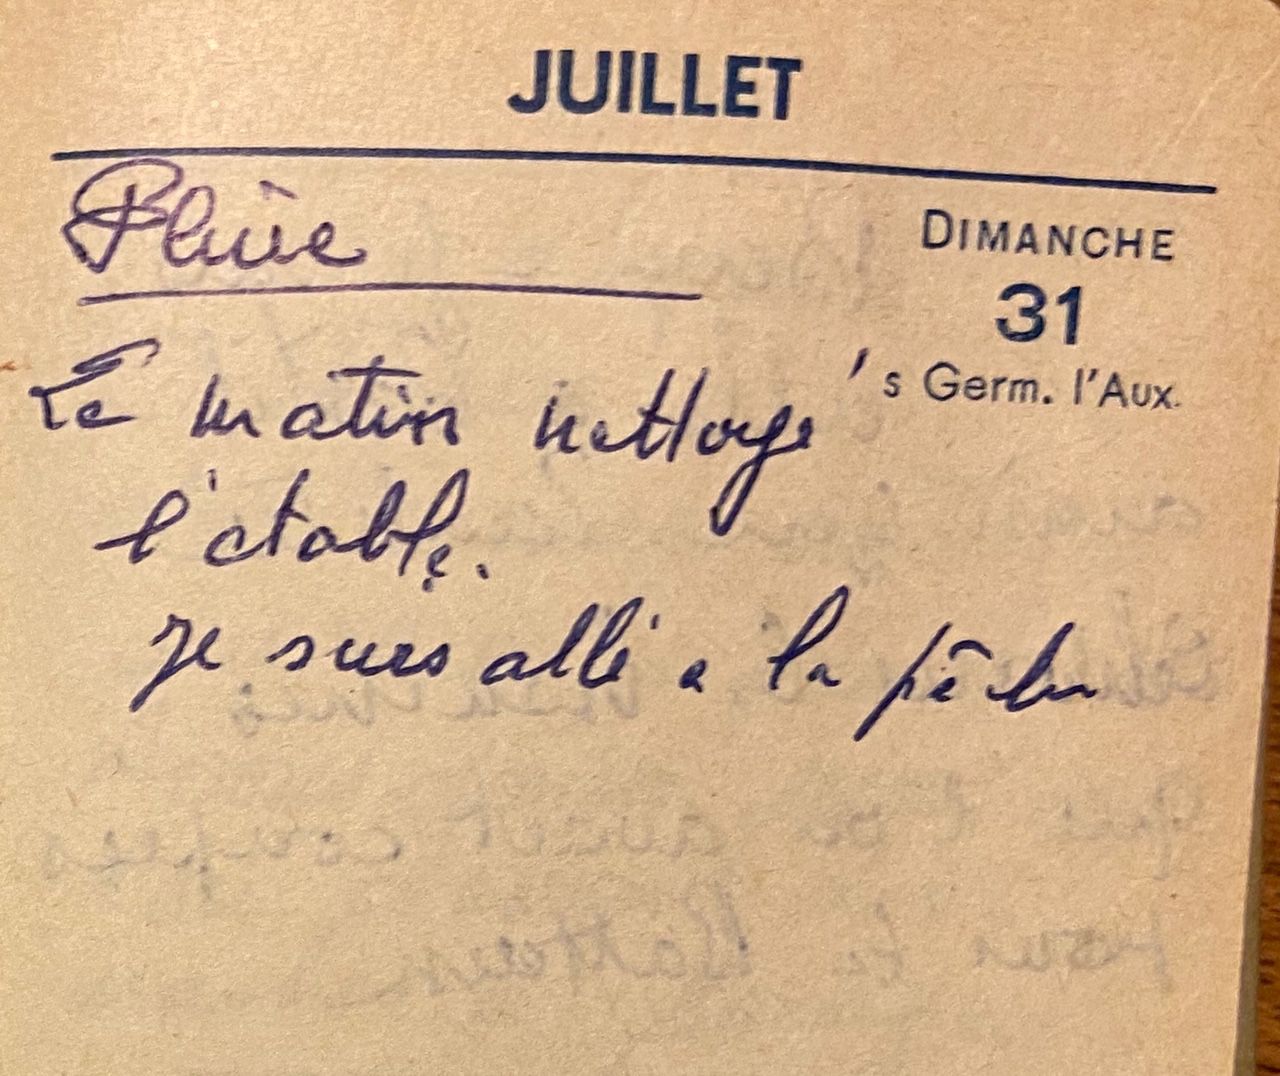 JUILLET
Pluie
DIMANCHE
31
s Germ. l'Aux.
Le matin nettoyé
l'étable.
je suis allé a la pêche